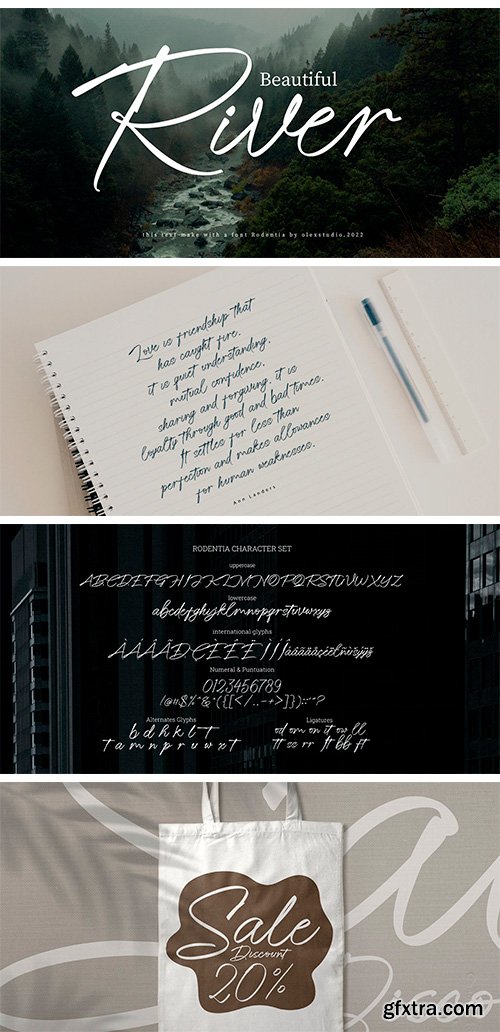 Beautiful
River
this text make with a font Rodentia by olexstudio,2022
Love is friendship that
has caught fire.
it is quiet understanding,
mutual confidence,
sharing and forgiving. it is
loyalty through good and bad times.
It settles for less than
perfection and makes allowances
for human weaknesses.
Ann Landers
RODENTIA CHARACTER SET
uppercase
ABCDEFGHIJKLMNOPQRSTUVWXYZ
lowercase
abcdefghijklmnopqrstuvwxyz
international glyphs
Numeral & Puntuation
0123456789
Alternates Glyphs
Ligatures
b d h k l T
od om on it ow ll
t a m n p r u w x t
tt ss rr ft bb ff
Sale
Discount
20%
Disco
gfxtra.com